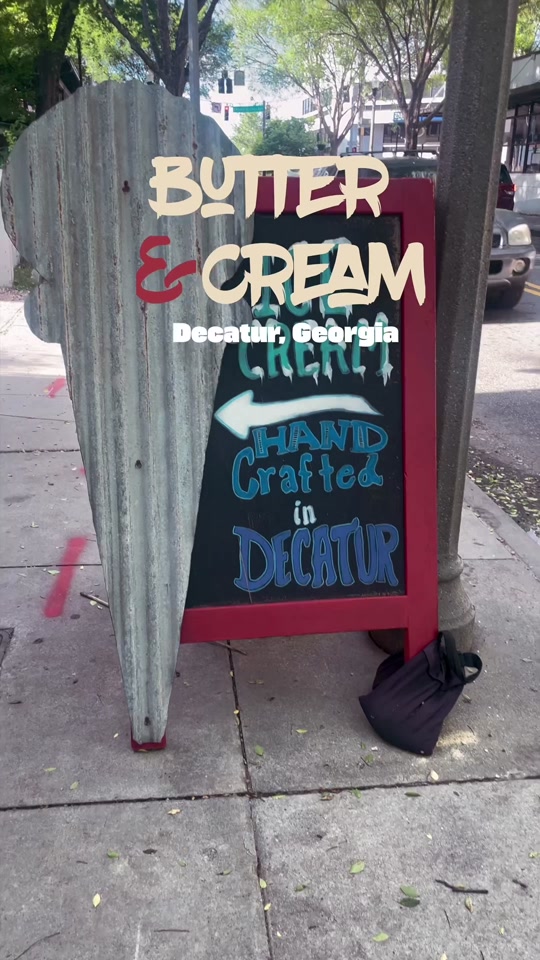 BUTTER
& CREAM
Decatur, Georgia
ICE
CREAM
HAND
Crafted
in
DECATUR